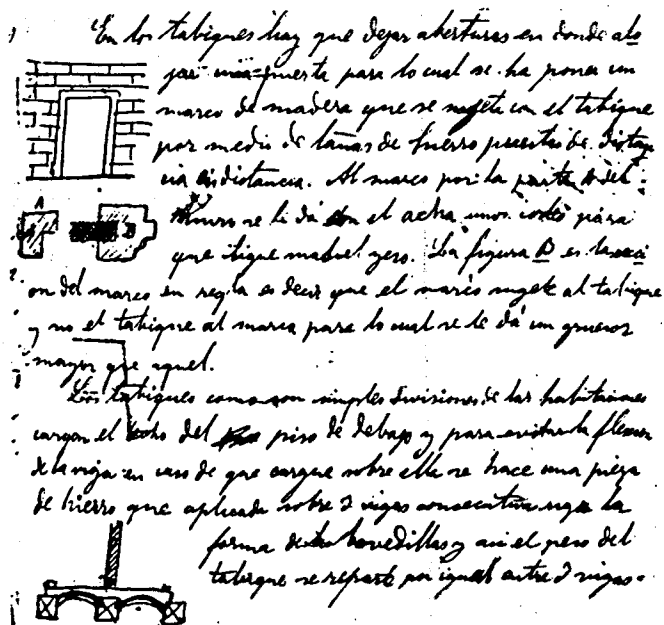 En los tabiques hay que dejar aberturas en donde alo
jar una puerta para lo cual se ha poner un
marco de madera que se sujeta con el tabique
por medio de lañas de hierro puestas de distan
cia en distancia. Al marco por la parte A del
A
muro se le dá con el acha unos cortes para
que ligue mas el yeso. La figura B es la secci
B
on del marco en regla es decir que el marco sujete al tabique
y no el tabique al marco para lo cual se le dá un grueso
mayor que aquel.
Los tabiques como son simples divisiones de las habitaciones
cargan el techo del piso de debajo y para evitar la flexion
de la viga en caso de que cargue sobre ella se hace una pieza
de hierro que aplicada sobre 2 vigas consecutivas siga la
forma de las bovedillas y asi el peso del
tabique se reparte por igual entre 2 vigas.